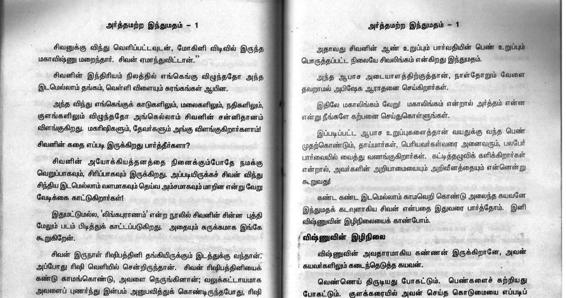 அர்த்தமற்ற இந்துமதம் – 1
சிவனுக்கு விந்து வெளிப்பட்டவுடன், மோகினி விடிவில் இருந்த
மகாவிஷ்ணு மறைந்தார். சிவன் ஏமாந்துவிட்டான்."
சிவனின் இந்திரியம் நிலத்தில் எங்கெங்கு விழுந்ததோ அந்த
இடமெல்லாம் தங்கம், வெள்ளி விளையும் சுரங்கங்கள் ஆயின.
அந்த விந்து எங்கெங்குக் காடுகளிலும், மலைகளிலும், நதிகளிலும்,
குளங்களிலும் விழுந்ததோ அங்கெல்லாம் சிவனின் சன்னிதானம்
விளங்குகிறது. மகரிஷிகளும், தேவர்களும் அங்கு விளங்குகிறார்களாம்!
சிவனின் கதை எப்படி இருக்கிறது பார்த்தீர்களா?
சிவனின் அயோக்கியத்தனத்தை நினைக்கும்போதே நமக்கு
வெறுப்பாகவும், சிரிப்பாகவும் இருக்கிறது. அப்படியிருக்கச் சிவன் விந்து
சிந்திய இடமெல்லாம் வளமாகவும் தெய்வ அம்சமாகவும் மாறின என்று வேறு
வேடிக்கை காட்டுகிறார்கள்!
இதுமட்டுமல்ல, 'லிங்கபுராணம்' என்ற நூலில் சிவனின் சின்ன புத்தி
மேலும் படம் பிடித்துக் காட்டப்படுகிறது. அதையும் சுருக்கமாக இங்கே
கூறுகிறேன்.
சிவன் இருநாள் ரிஷிபத்தினி தங்கியிருக்கும் இடத்துக்கு வந்தான்.
அப்போது ரிஷி வெளியில் சென்றிருந்தான். சிவன் ரிஷிபத்தினியைக்
கண்டு காமங்கொண்டு, அவளை நெருங்கினான்; வலுக்கட்டாயமாக
அவளைப் புணர்ந்து இன்பம் அனுபவித்துக் கொண்டிருந்தபோது, ரிஷி
அர்த்தமற்ற இந்துமதம் – 1
அதாவது சிவனின் ஆண் உறுப்பும் பார்வதியின் பெண் உறுப்பும்
பொருத்தப்பட்ட நிலையே சிவலிங்கம் என்கிறது இந்துமதம்.
அந்த ஆபாச அடையாளத்திற்குத்தான், நாள்தோறும் வேளை
தவறாமல் அபிஷேக ஆராதனை செய்கிறார்கள்.
இதிலே மகாலிங்கம் வேறு! மகாலிங்கம் என்றால் அர்த்தம் என்ன
என்று நீங்களே கற்பனை செய்துகொள்ளுங்கள்.
இப்படிப்பட்ட ஆபாச உறுப்புகளைத்தான் வயதுக்கு வந்த பெண்
முதற்கொண்டும், தாய்மார்கள், பெரியவர்கள்வரை அனைவரும், பலபேர்
பார்வையில் வைத்து வணங்குகிறார்கள். கட்டித்தழுவிக் களிக்கிறார்கள்
என்றால், அவர்களின் அறியாமையையும் அறிவீனத்தையும் என்னென்று
கூறுவது!
கண்ட கண்ட இடமெல்லாம் காமவெறி கொண்டு அலைந்த கயவனே
இந்துமதக் கடவுளாகிய சிவன் என்பதை இதுவரை பார்த்தோம். இனி
விஷ்ணுவின் இழிநிலையைக் காண்போம்.
விஷ்ணுவின் இழிநிலை
விஷ்ணுவின் அவதாரமாகிய கண்ணன் இருக்கிறானே, அவன்
கயவர்களிலும் கடைந்தெடுத்த கயவன்.
வெண்ணெய் திருடியது போகட்டும். பெண்களைச் சுற்றியது
போகட்டும். குளக்கரையில் அவன் செய்த கொடுமையை எப்படிப்